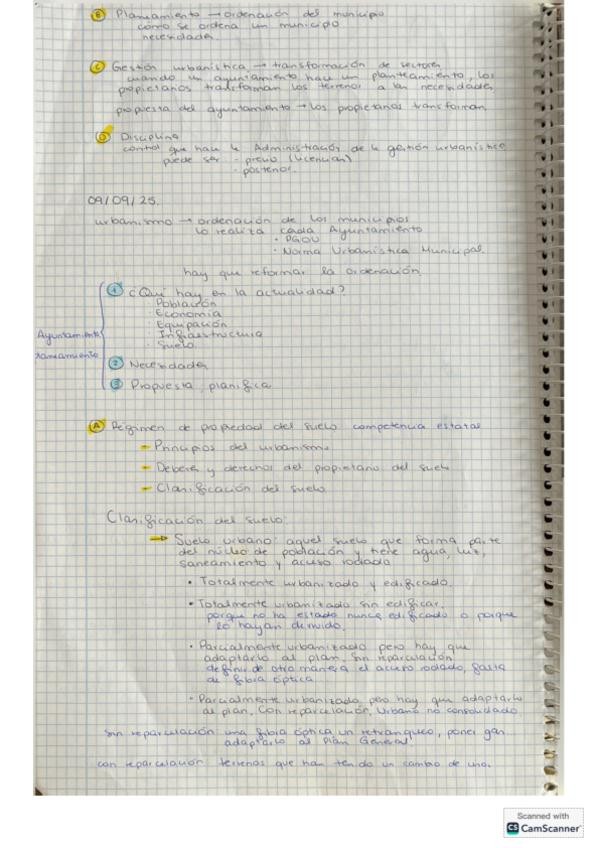 B Planeamiento → ordenación del municipio
como se ordena un municipio
necesidades
C Gestión urbanística → transformación de sectores
cuando un ayuntamiento hace un planteamiento, los
propietarios transforman los terrenos a las necesidades
propuesta del ayuntamiento → los propietarios transforman.
D Disciplina
control que hace la Administración de la gestión urbanística
puede ser - previo (licencias)
- posterior.
09/09/25.
urbanismo → ordenación de los municipios
lo realiza cada Ayuntamiento
• PGOU
• Norma Urbanística Municipal.
hay que reformar la ordenación
1 ¿Qué hay en la actualidad?
· Población
· Economía
· Equipación
· Infraestructura
· Suelo
Ayuntamiento
2 Necesidades
3 Propuesta, planifica
A Régimen de propiedad del suelo competencia estatal
- Principios del urbanismo
- Deberes y derechos del propietario del suelo
- Clasificación del suelo
Clasificación del suelo:
→ Suelo urbano: aquel suelo que forma parte
del núcleo de población y tiene agua, luz,
saneamiento y acceso rodado
• Totalmente urbanizado y edificado.
• Totalmente urbanizado sin edificar,
porque no ha estado nunca edificado o porque
lo hayan derruido.
• Parcialmente urbanizado pero hay que
adaptarlo al plan. Sin reparcelación
definir de otra manera el acceso rodado, falta
de fibra óptica
• Parcialmente urbanizado pero hay que adaptarlo
al plan. Con reparcelación. Urbano no consolidado
sin reparcelación una fibra óptica un retranqueo, poner gas...
adaptarlo al Plan General
con reparcelación terrenos que han tenido un cambio de uso.
Scanned with
CS CamScanner